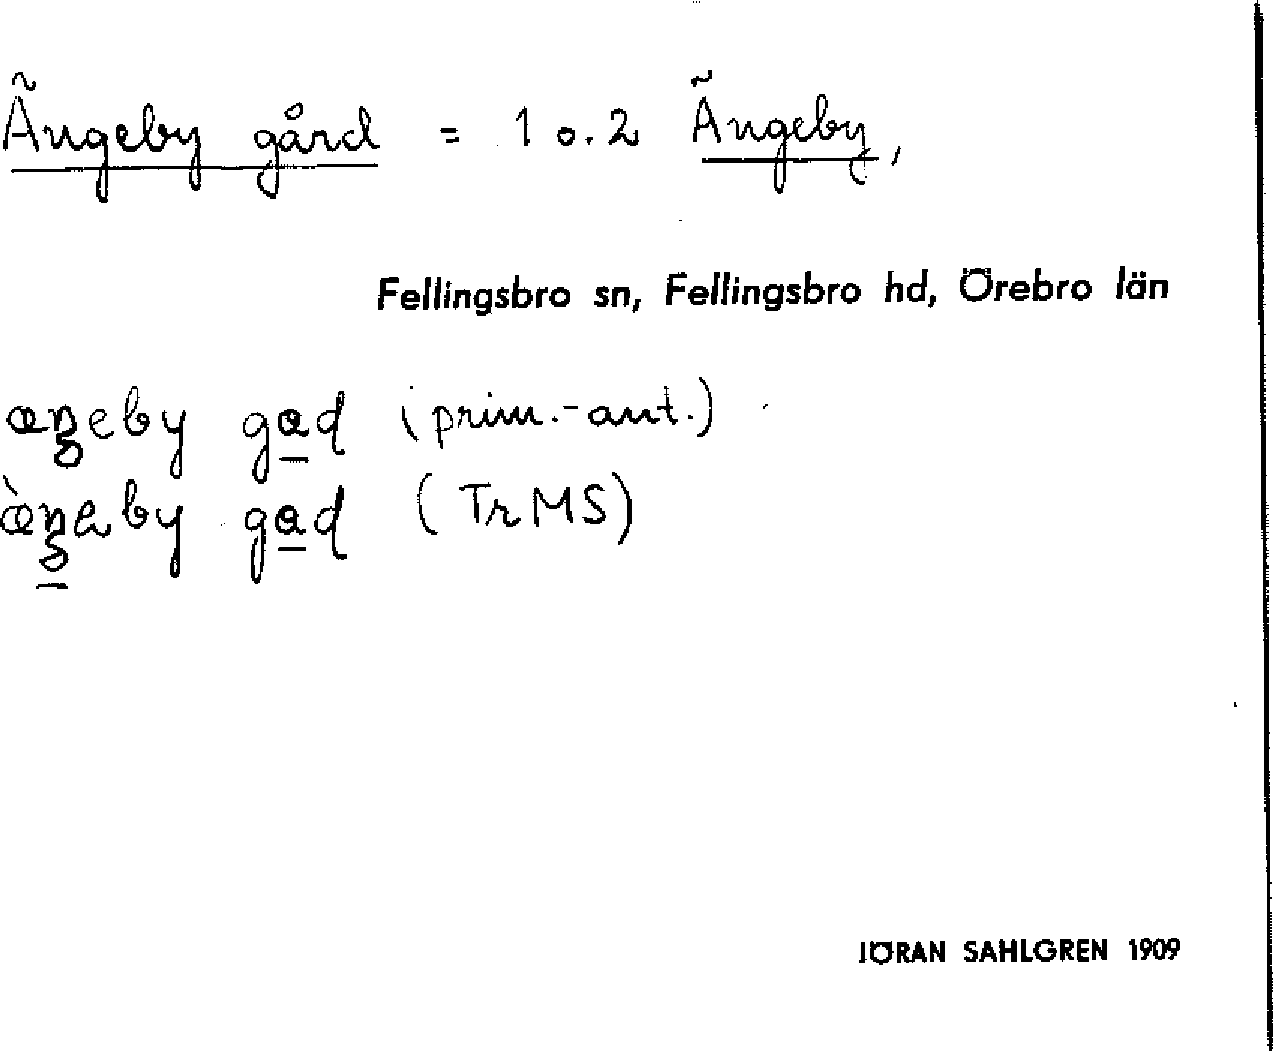 Ängeby gård = 1 o. 2 Ängeby,
Fellingsbro sn, Fellingsbro hd, Örebro län
gad (prim.-ant.)
gad (TrMS)
JÖRAN SAHLGREN 1909